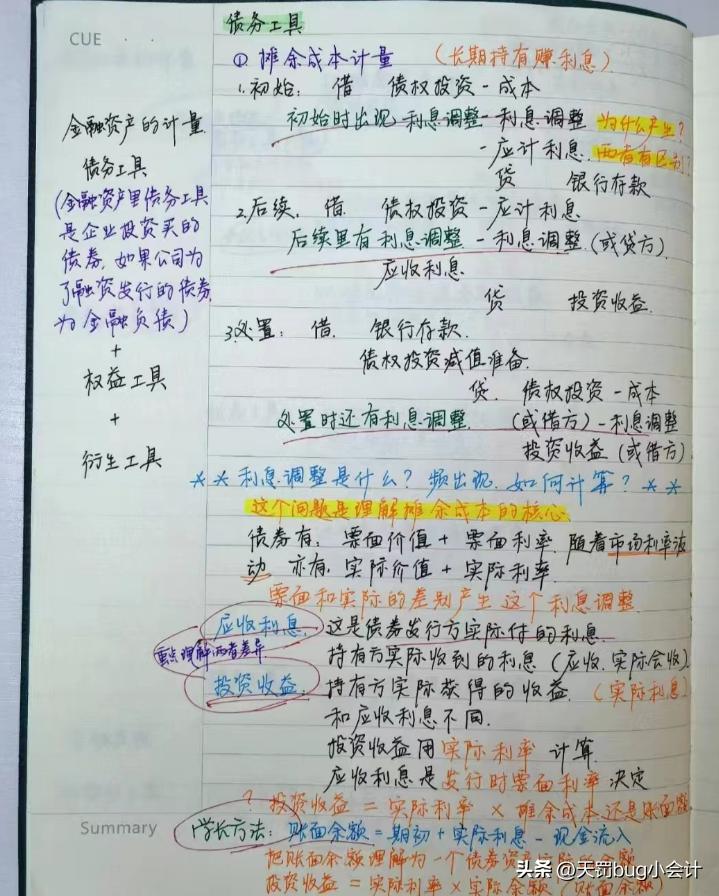 CUE
债务工具
① 摊余成本计量 (长期持有赚利息)
1.初始: 借 债权投资-成本
初始时出现利息调整-利息调整 为什么产生?
-应计利息 两者有区别?
贷 银行存款
金融资产的计量
债务工具
(金融资产里债务工具
是企业投资买的
债券,如果公司为
了融资发行的债券
为金融负债)
+
权益工具
+
衍生工具
2.后续. 借 债权投资-应计利息
后续里有利息调整-利息调整(或贷方)
应收利息
贷 投资收益
3.处置: 借 银行存款
债权投资减值准备
贷 债权投资-成本
处置时还有利息调整 (或借方)-利息调整
投资收益(或借方)
**利息调整是什么?频出现.如何计算?**
这个问题是理解摊余成本的核心
债券有: 票面价值+票面利率.随着市场利率波
动 亦有:实际价值+实际利率
票面和实际的差别产生这个利息调整
应收利息 这是债券发行方实际付的利息
重点理解两者差异
持有方实际收到的利息(应收.实际会收)
投资收益 持有方实际获得的收益 (实际利息)
和应收利息不同.
投资收益用实际利率计算
应收利息是发行时票面利率决定
?投资收益=实际利率×摊余成本还是账面余额
Summary
学长方法: 账面余额=期初+实际利息-现金流入
把账面余额理解为一个债券资
投资收益=实际利率×实际余额
头条 @天罚bug小会计